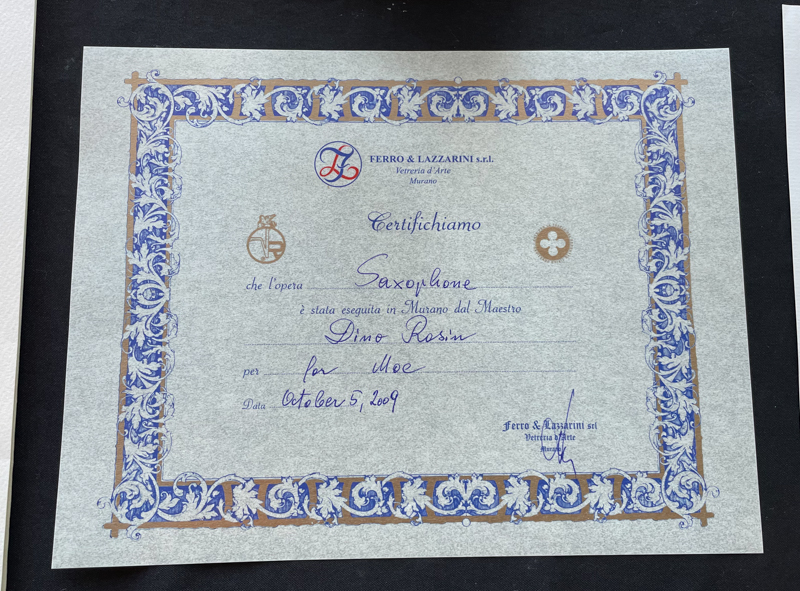 FERRO & LAZZARINI s.r.l.
Vetreria d'Arte
Murano
Certifichiamo
che l'opera Saxophone
è stata eseguita in Murano dal Maestro
Dino Rosin
per for Moe
Data October 5, 2009
Ferro & Lazzarini srl
Vetreria d'Arte
Murano